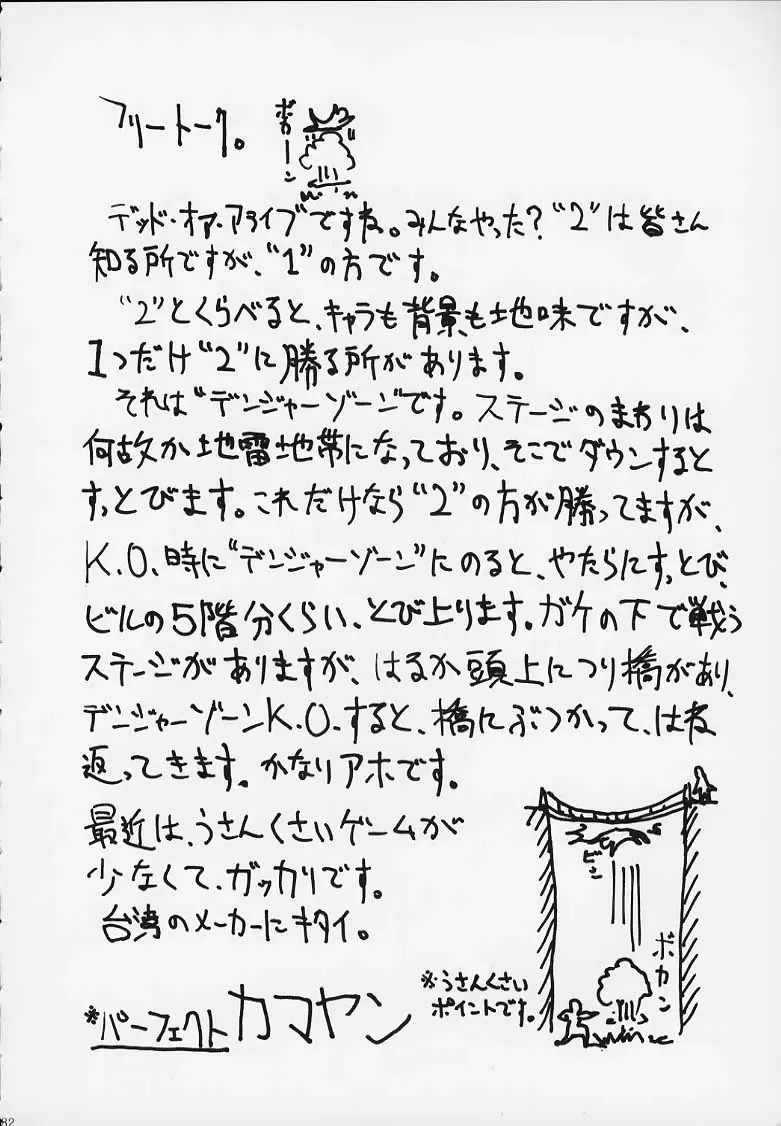 フリートーク。
ボカーン
デッド・オア・アライブですね。みんなやった？“2”は皆さん
知る所ですが、“1”の方です。
“2”とくらべると、キャラも背景も地味ですが、
1つだけ“2”に勝る所があります。
それは“デンジャーゾーン”です。ステージのまわりは
何故か地雷地帯になっており、そこでダウンすると
すっとびます。これだけなら“2”の方が勝ってますが、
K.O.時に“デンジャーゾーン”にのると、やたらにすっとび、
ビルの5階分くらい、とび上ります。ガケの下で戦う
ステージがありますが、はるか頭上につり橋があり、
デンジャーゾーンK.O.すると、橋にぶつかって、はね
返ってきます。かなりアホです。
最近は、うさんくさいゲームが
少なくて、ガッカリです。
台湾のメーカーにキタイ。
ビシ
ボカン
※うさんくさい
ポイントです。
※パーフェクトカマヤン
82